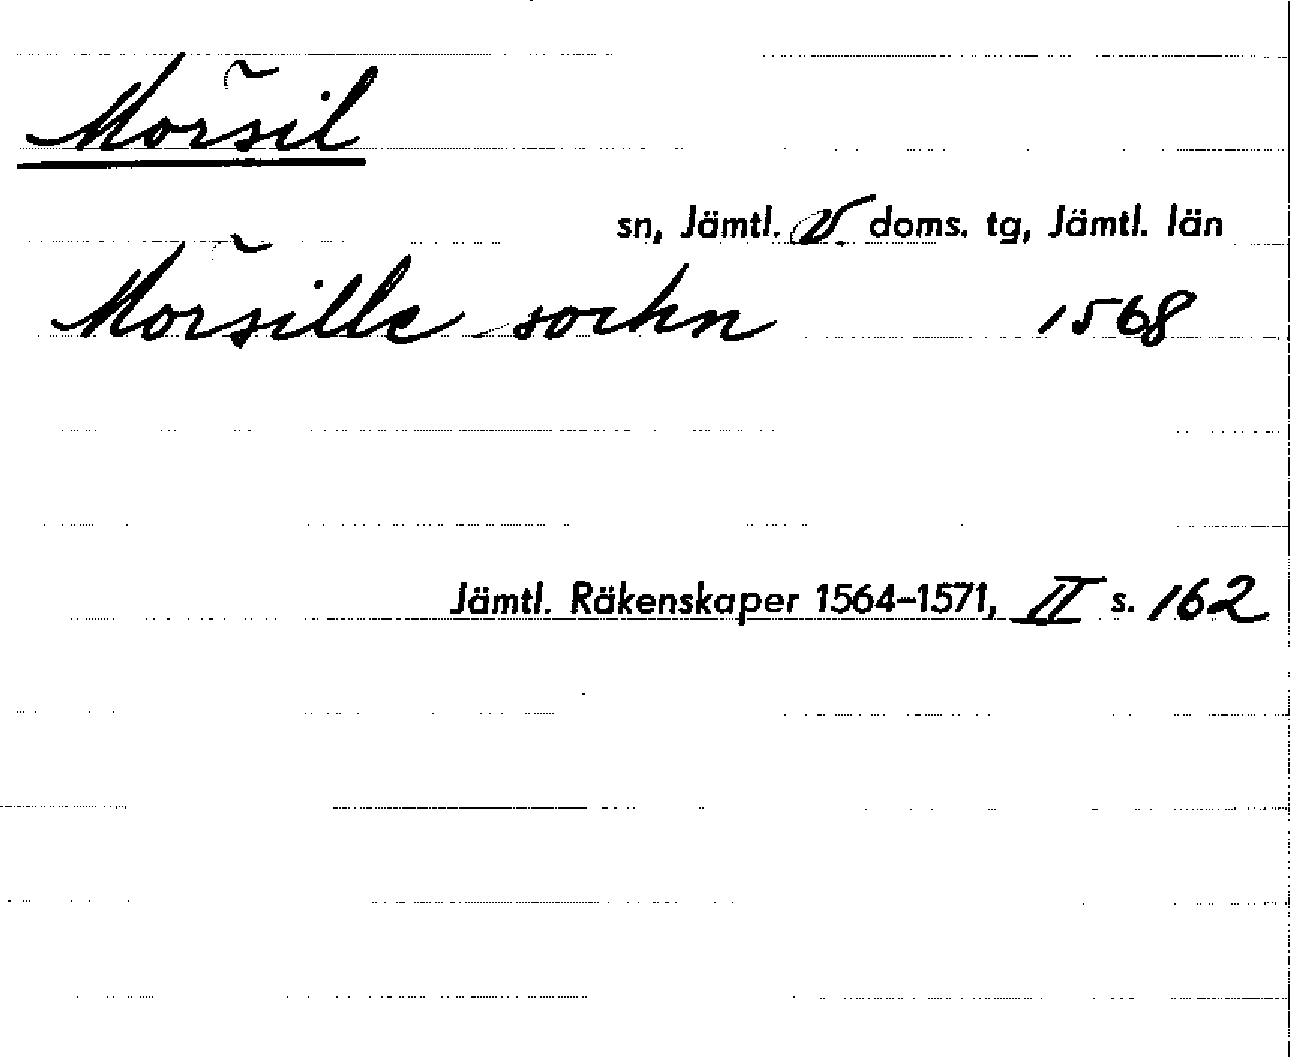 Mörsil
sn, Jämtl. V doms. tg, Jämtl. län
Mörsille sockn 1568
Jämtl. Räkenskaper 1564–1571, II s. 162